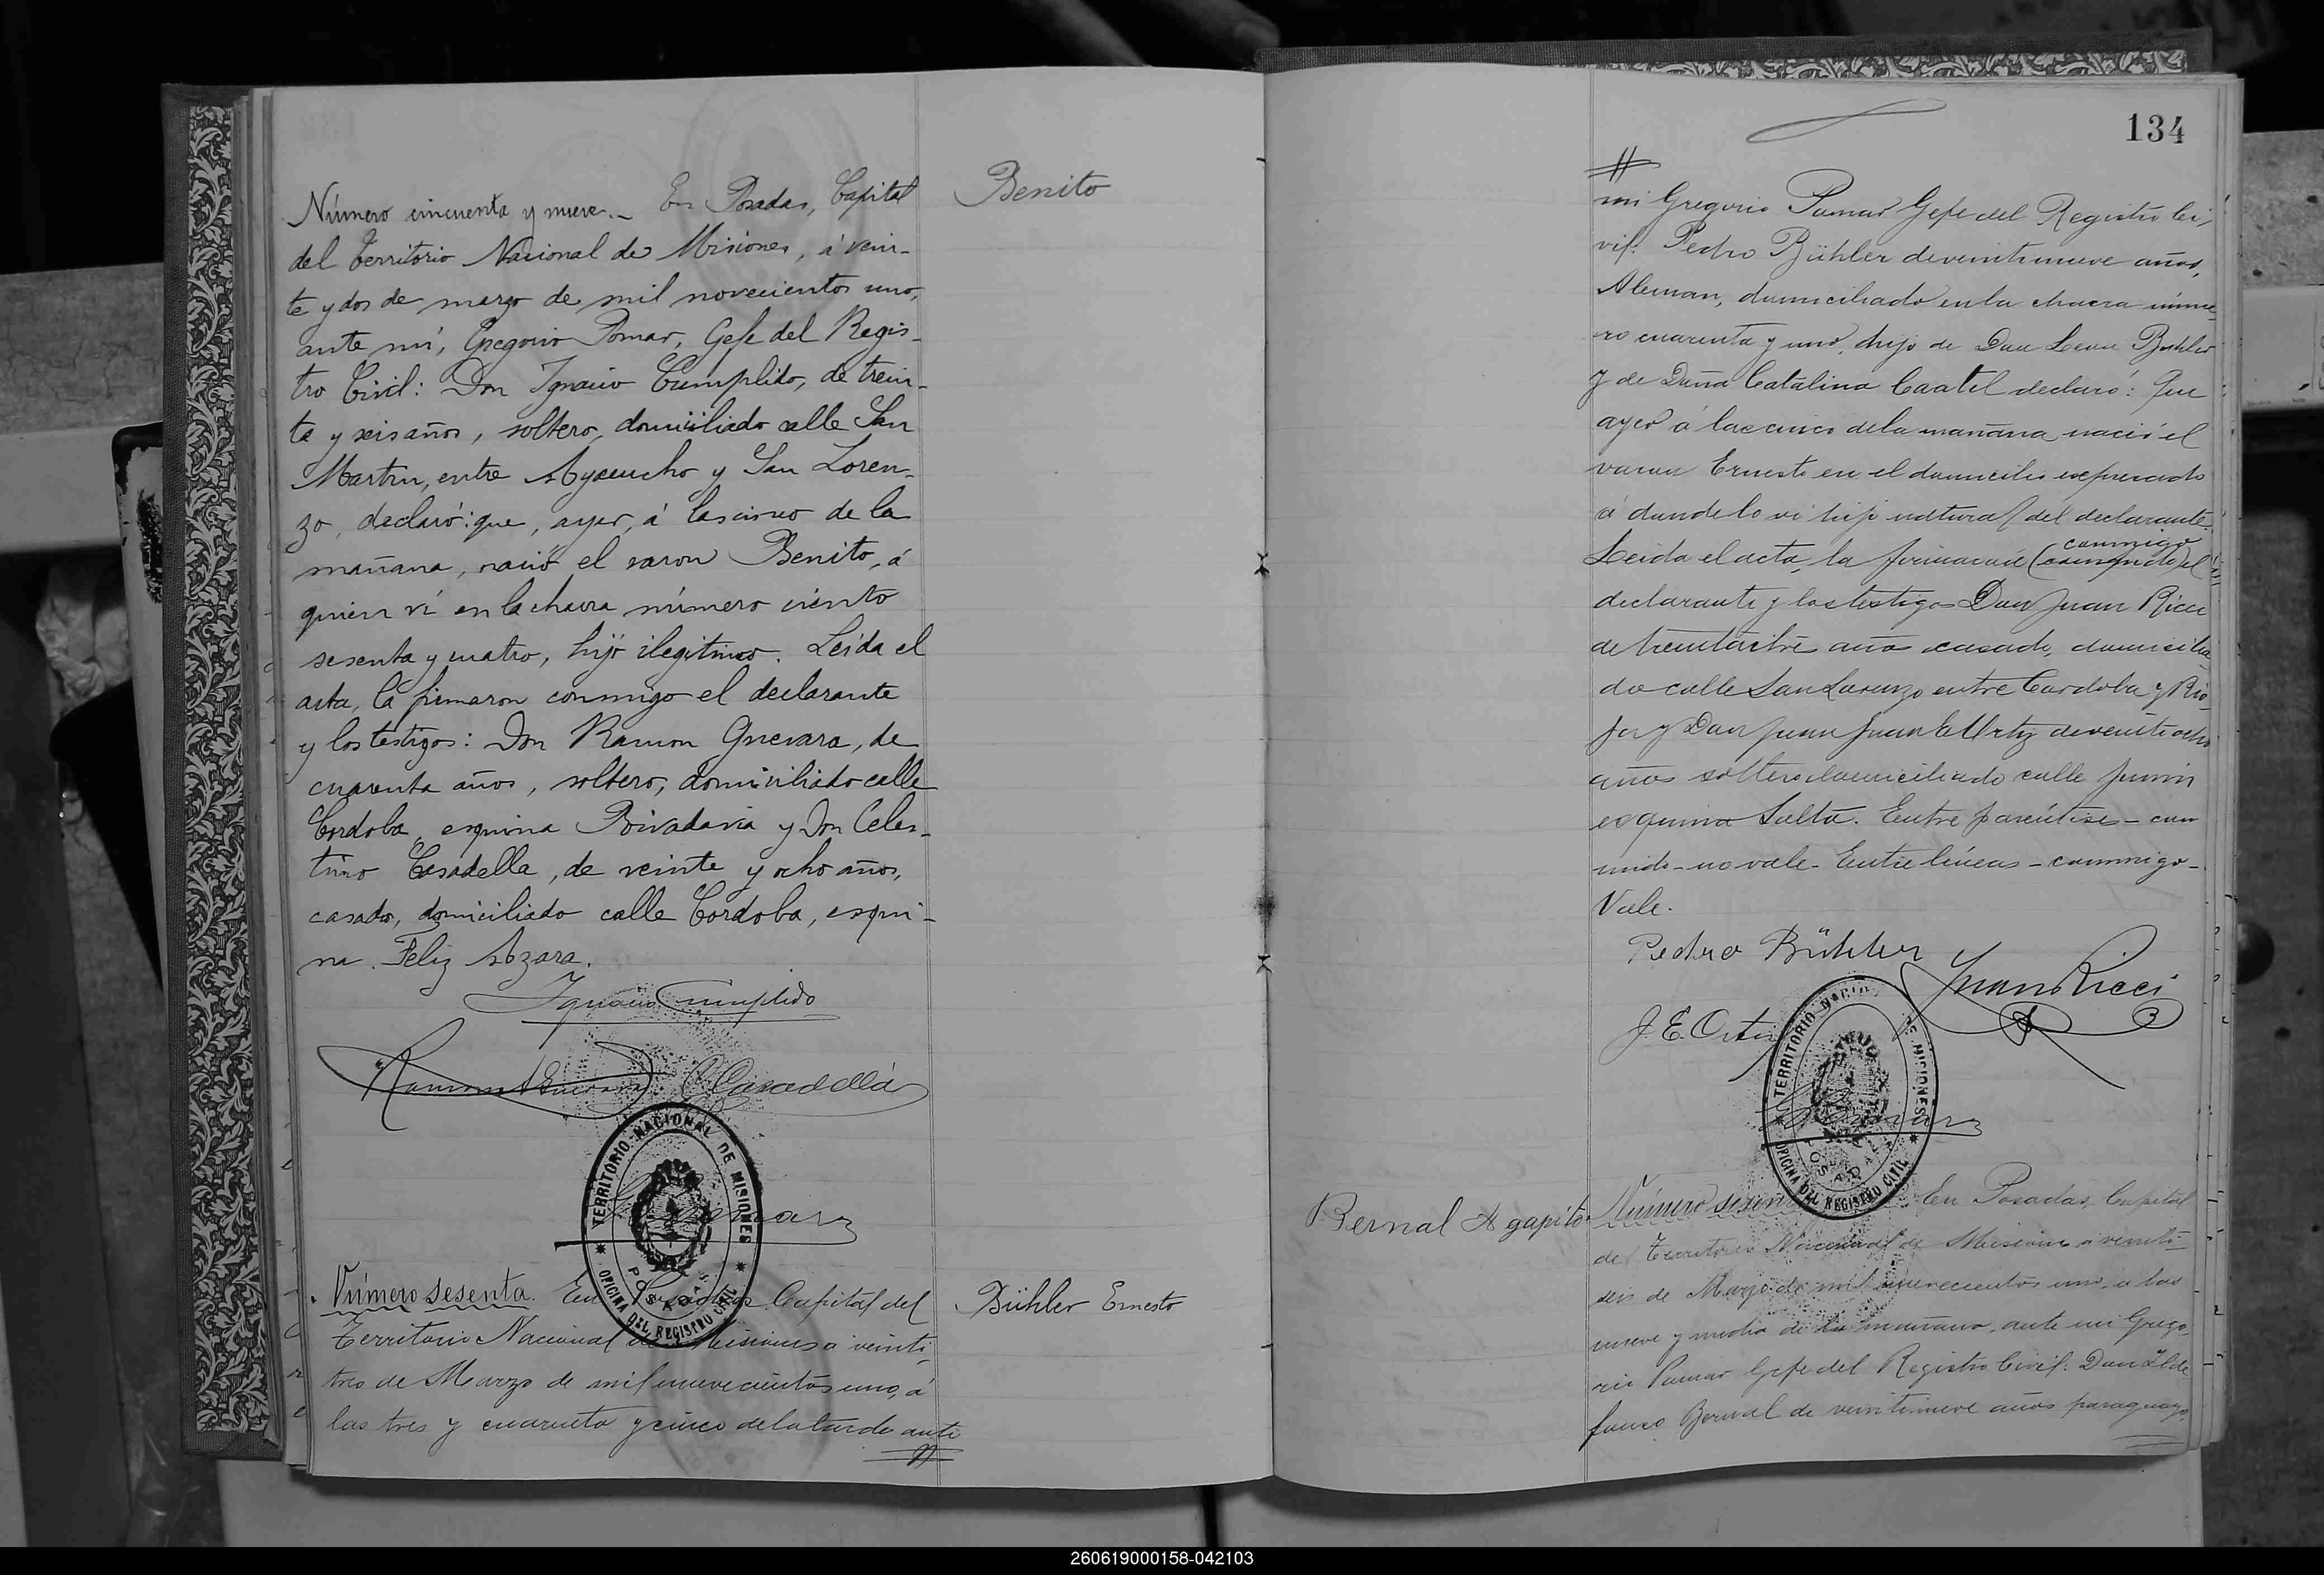 Benito
Número cincuenta y nueve.- En Posadas, Capital
del Territorio Nacional de Misiones, á vein-
te y dos de marzo de mil novecientos uno,
ante mí, Gregorio Pomar, Gefe del Regis-
tro Civil: Don Ignacio Cumplido, de trein-
ta y seis años, soltero, domiciliado calle San
Martin, entre Ayacucho y San Loren-
zo, declaró: que, ayer, á las cinco de la
mañana, nació el varon Benito, á
quien ví en la chacra número ciento
sesenta y cuatro, hijo ilegitimo. Leída el
acta, la firmaron conmigo el declarante
y los testigos: Don Ramon Guevara, de
cuarenta años, soltero, domiciliado calle
Cordoba, esquina Rivadavia y Don Celes-
tino Casadella, de veinte y ocho años,
casado, domiciliado calle Cordoba, esqui-
na Feliz Azara.
Ignacio Cumplido
Ramon Guevara C. Casadellá
TERRITORIO NACIONAL DE MISIONES
POSADAS
OFICINA DEL REGISTRO CIVIL
Bühler Ernesto
Número sesenta. En Posadas Capital del
Territorio Nacional de Misiones a veinti-
tres de Marzo de mil nuevecientos uno, á
las tres y cuarenta y cinco de la tarde ante
134
mi Gregorio Pomar Gefe del Registro Ci-
vil. Pedro Bühler de veintinueve años,
Aleman, domiciliado en la chacra núme-
ro cuarenta y uno, hijo de Don Leon Buhler
y de Doña Catalina Caatel declaró: Que
ayer á las cinco de la mañana nació el
varon Ernesto en el domicilio expresado
á donde lo vi hijo natural del declarante.
conmigo
Leida el acta, la firmaron (comunido) el
declarante y los testigos Don Juan Ricci
de treintaitre año casado, domicilia-
do calle San Lorenzo entre Cordoba y Rio-
ja y Don Juan Juan E Urtiz de veintiocho
años soltero domiciliado calle Junin
esquina Salta. Entre paréntises - com
unido - no vale - Entre líneas - conmigo -
Vale.
Pedro Bühler
Juan Ricci
J. E. Ortiz
TERRITORIO NACIONAL DE MISIONES
POSADAS
OFICINA DEL REGISTRO CIVIL
Bernal Agapito
Número sesen En Posadas, Capital
del Territorio Nacional de Misiones a veinti-
seis de Marzo de mil nuevecientos uno, a las
nueve y media de la mañana, ante mi Grego-
rio Pomar Gefe del Registro Civil: Don Ilde
fonso Bernal de veintinueve años paraguayo,
260619000158-042103